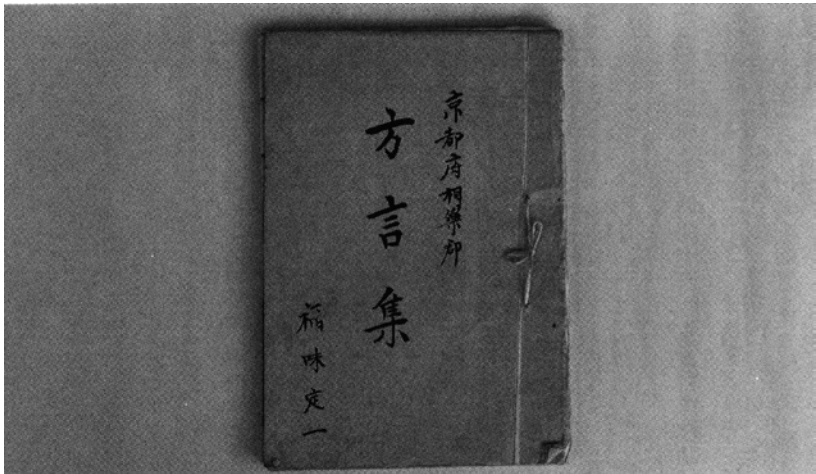 京都府相樂郡
方言集
味定一